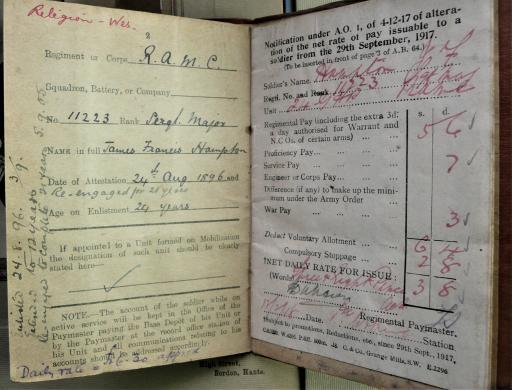 Religion - Wes.
2
Regiment or Corps R.A.M.C.
Squadron, Battery, or Company
No 11223 Rank Sergt. Major
NAME in full James Francis Hampton
Date of Attestation 24th Aug 1896 and
Re-engaged for 21 years
Age on Enlistment 24 years
If appointed to a Unit formed on Mobilization
the designation of such unit should be clearly
stated here—
NOTE.—The account of the soldier while on
active service will be kept in the Office of the
Paymaster paying the Base Depot of his Unit or
by the Paymaster at the record office station of
his Unit and all communications relating to his
accounts should be addressed accordingly.
Daily rate =
Enlisted 24.8.96
12 years
Re-engaged to complete 21 years 5.9.05
Notification under A.O. 1, of 4-12-17 of altera-
tion of the net rate of pay issuable to a
soldier from the 29th September, 1917.
(To be inserted in front of page 3 of A.B. 64.)
Soldier's Name Hampton J F
Regtl. No. and Rank 11223
Unit
s. d.
Regimental Pay (including the extra 3d.
a day authorised for Warrant and
N.C.Os. of certain arms) 5 6
Proficiency Pay
Service Pay 7
Engineer or Corps Pay
Difference (if any) to make up the mini-
mum under the Army Order
War Pay 3
6 4
Deduct Voluntary Allotment
Compulsory Stoppage 2 8
NET DAILY RATE FOR ISSUE: 3 8
(Words)
Regimental Paymaster.
Date. Station
Subject to promotions, Reductions, etc., since 29th Sept., 1917.
High Street,
Bordon, Hants.